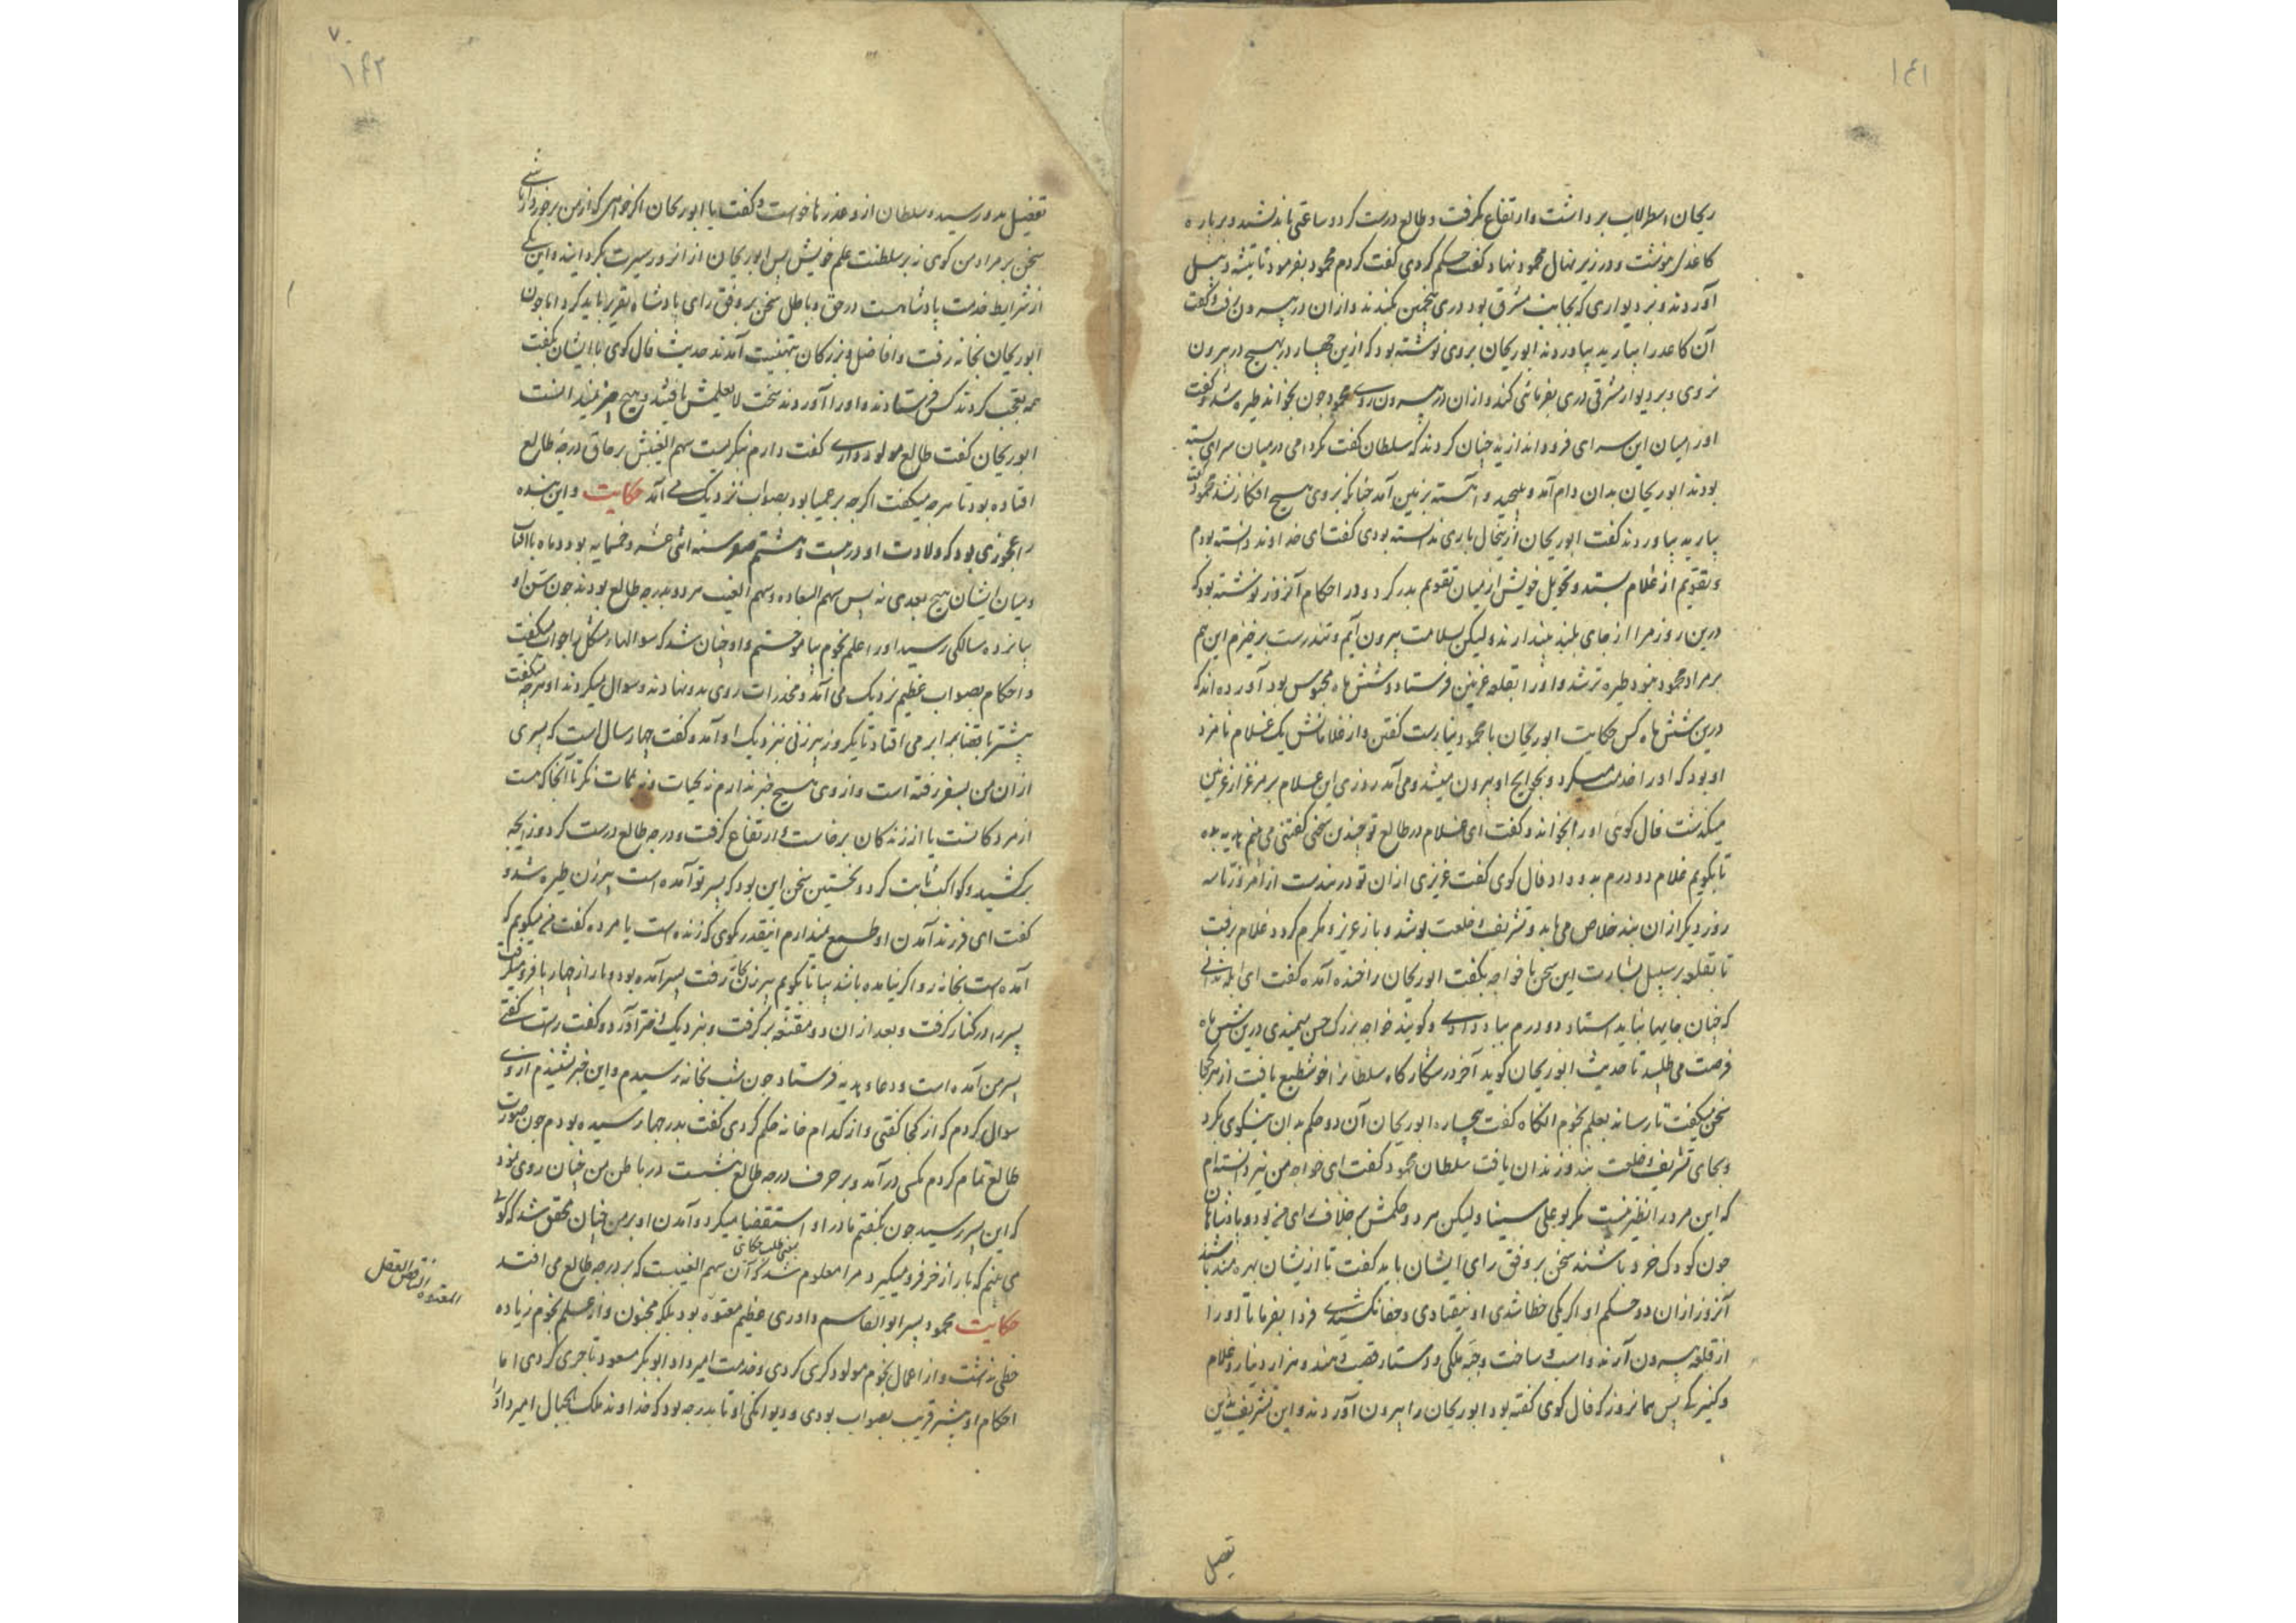 ١٤١
ریحان اسطرلاب برداشت وارتفاع بکرفت و طالع درست کرد و ساعتی باندیشید و بر پاره
کاغذ بنوشت و در زیر نهال محمود نهاد کفت حکم کردی کفت کردم محمود بفرمود تا تیشه و بیل
آوردند و بر دیواری که بجانب مشرق بود دری پنجمین بکندند و ازان در بیرون رفت و کفت
آن کاغذ را بیارید بیاوردند ابوریحان بروی نوشته بود که ازین چهار در بهیچ در بیرون
نروی و بر دیوار مشرقی دری بفرمائی کند و ازان در بیرون روی محمود چون بخواند طیره شد و کفت
او را میان این سرای فرو اندازید چنان کردند که سلطان کفت مکر دامی در میان سرای بسته
بودند ابوریحان بدان دام آمد و بپیچید و آهسته بزمین آمد چنانکه بروی هیچ افکار نشد محمود کفت
بیارید بیاوردند کفت ابوریحان ازینحال باری ندانسته بودی کفت ای خداوند دانسته بودم
و تقویم از غلام بستد و تحویل خویش از میان تقویم بدر کرد و در احکام آنروز نوشته بود که
درین روز مرا از جای بلند بیندازند ولیکن بسلامت بیرون آیم و تندرست برخیزم این هم
بر مراد محمود نبود طیره تر شد و او را بقلعه غزنین فرستاد و شش ماه محبوس بود آورده اند که
درین شش ماه کس حکایت ابوریحان با محمود نیارست کفتن و از غلامانش یک غلام نامزد
او بود که او را خدمت میکرد و بحوایج او بیرون میشد و می آمد روزی این غلام بر مرغزار غزنین
میکذشت فال کوی او را بخواند و کفت ای غلام در طالع تو چندین سخن کفتنی می بینم هدیه بده
تا بکویم غلام دو درم بدو داد فال کوی کفت عزیزی ازان تو در بندست از امروز تا سه
روز دیکر ازان بند خلاص می یابد و تشریف و خلعت پوشد و باز عزیز و مکرم کردد غلام برفت
تا بقلعه بر سبیل بشارت این سخن با خواجه بکفت ابوریحان را خنده آمد و کفت ای ابله ندانی
که چنان جایها نباید استاد دو درم بباد دادی و کویند خواجه بزرک حسن میمندی درین شش ماه
فرصت می طلبید تا حدیث ابوریحان کوید آخر در شکارکاه سلطانرا خوشطبع یافت از هر کجا
سخن میکفت تا رسانید بعلم نجوم آنکاه کفت بیچاره ابوریحان آن دو حکم بدان نیکوی بکرد
و بجای تشریف و خلعت بند و زندان یافت سلطان محمود کفت ای خواجه من نیز دانسته ام
که این مرد را نظیر نیست مکر بوعلی سینا ولیکن هر دو حکمش بر خلاف رای من بود و پادشاهان
چون کودک خرد باشند سخن بر وفق رای ایشان باید کفت تا ازیشان بهره مند باشند
آنروز ازان دو حکم او اکر یکی خطا شدی او نیفتادی و جفا نکشیدی فردا بفرما تا او را
از قلعه بیرون آرند و اسب و ساخت و جبه ملکی و دستار قصب دهند و هزار دینار و غلام
و کنیزک پس همانروز که فال کوی کفته بود ابوریحان را بیرون آوردند و این تشریف بدین
تفصیل
٧
١٤٢
تفصیل بدو رسید و سلطان ازو عذرها خواست و کفت یا ابوریحان اکر خواهی که از من برخوردار باشی
سخن بر مراد من کوی نه بر سلطنت علم خویش پس ابوریحان از انروز سیرت بکردانید و این یکی
از شرایط خدمت پادشاهست در حق و باطل سخن بر وفق رای پادشاه تقریر باید کرد اما چون
ابوریحان بخانه رفت و افاضل و بزرکان بتهنیت آمدند حدیث فال کوی با ایشان بکفت
همه تعجب کردند کس فرستادند و او را آوردند سخت لایعلمش یافتند و هیچ چیز نمیدانست
ابوریحان کفت طالع مولود داری کفت دارم بنکریست سهم الغیبش بر حاق درجه طالع
افتاده بود تا هر چه میکفت اکرچه بر عمیا بود بصواب نزدیک می آمد حکایت و این بنده
را عجوزی بود که ولادت او در بیست و هشتم صفر سنه اثنی عشر و خمسمایه بود و ماه با آفتاب
و میان ایشان هیچ بعدی نه پس سهم السعاده و سهم الغیب هر دو بدرجه طالع بودند چون سن او
پانزده سالکی رسید او را علم نجوم بیاموختم و او چنان شد که سوالهاء مشکل را جواب میکفت
و احکام بصواب عظیم نزدیک می آمد و مخدرات روی بدو نهادند و سوال میکردند او هر چه میکفت
بیشتر با قضا برابر می افتاد تا یکروز پیرزنی نزدیک او آمد و کفت چهار سال است که پسری
ازان من بسفر رفته است و از وی هیچ خبر ندارم نه بحیات و نه ممات بنکر تا آنجا که هست
از مردکانست یا از زندکان برخاست و ارتفاع کرفت و درجه طالع درست کرد و زایجه
برکشید و کواکب ثابت کرد و نخستین سخن این بود که پسر تو آمده است پیرزن طیره شد و
کفت ای فرزند آمدن او طمع نمیدارم اینقدر بکوی که زنده است یا مرده کفت من میکویم که
آمده است بخانه رو اکر نیامده باشد بیا تا بکویم پیرزن بخانه رفت پسر آمده بود و بار از چهارپا فرو میکرفت
پسر را در کنار کرفت و بعد ازان دو مقنعه برکرفت و بنزدیک دختر آورد و کفت راست کفتی
پسر من آمده است و دعا و هدیه فرستاد چون شب بخانه رسیدم و این خبر شنیدم از وی
سوال کردم که از کجا کفتی و از کدام خانه حکم کردی کفت بدر چهار رسیده بودم چون صورت
طالع تمام کردم مکسی در آمد و بر حرف درجه طالع نشست در باطن من چنان روی نمود
که این پسر رسید چون بکفتم مادر او استقضا میکرد و آمدن او بر من چنان محقق شد که کوئی
می بینم که بار از خر فرو میکیرد مرا معلوم شد که آن سهم الغیبست که بر درجه طالع می افتد
حکایت محمود پسر ابوالقاسم داودی عظیم معتوه بود بلکه مجنون و از علم نجوم زیاده
المعتوه ناقص العقل
حظی نداشت و از اعمال نجوم مولودکری کردی و خدمت امیرداد ابوبکر مسعود تاجری کردی اما
احکام او بیشتر قریب بصواب بودی و دیوانکی او تا بدرجه بود که خداوند ملک الجبال امیرداد را